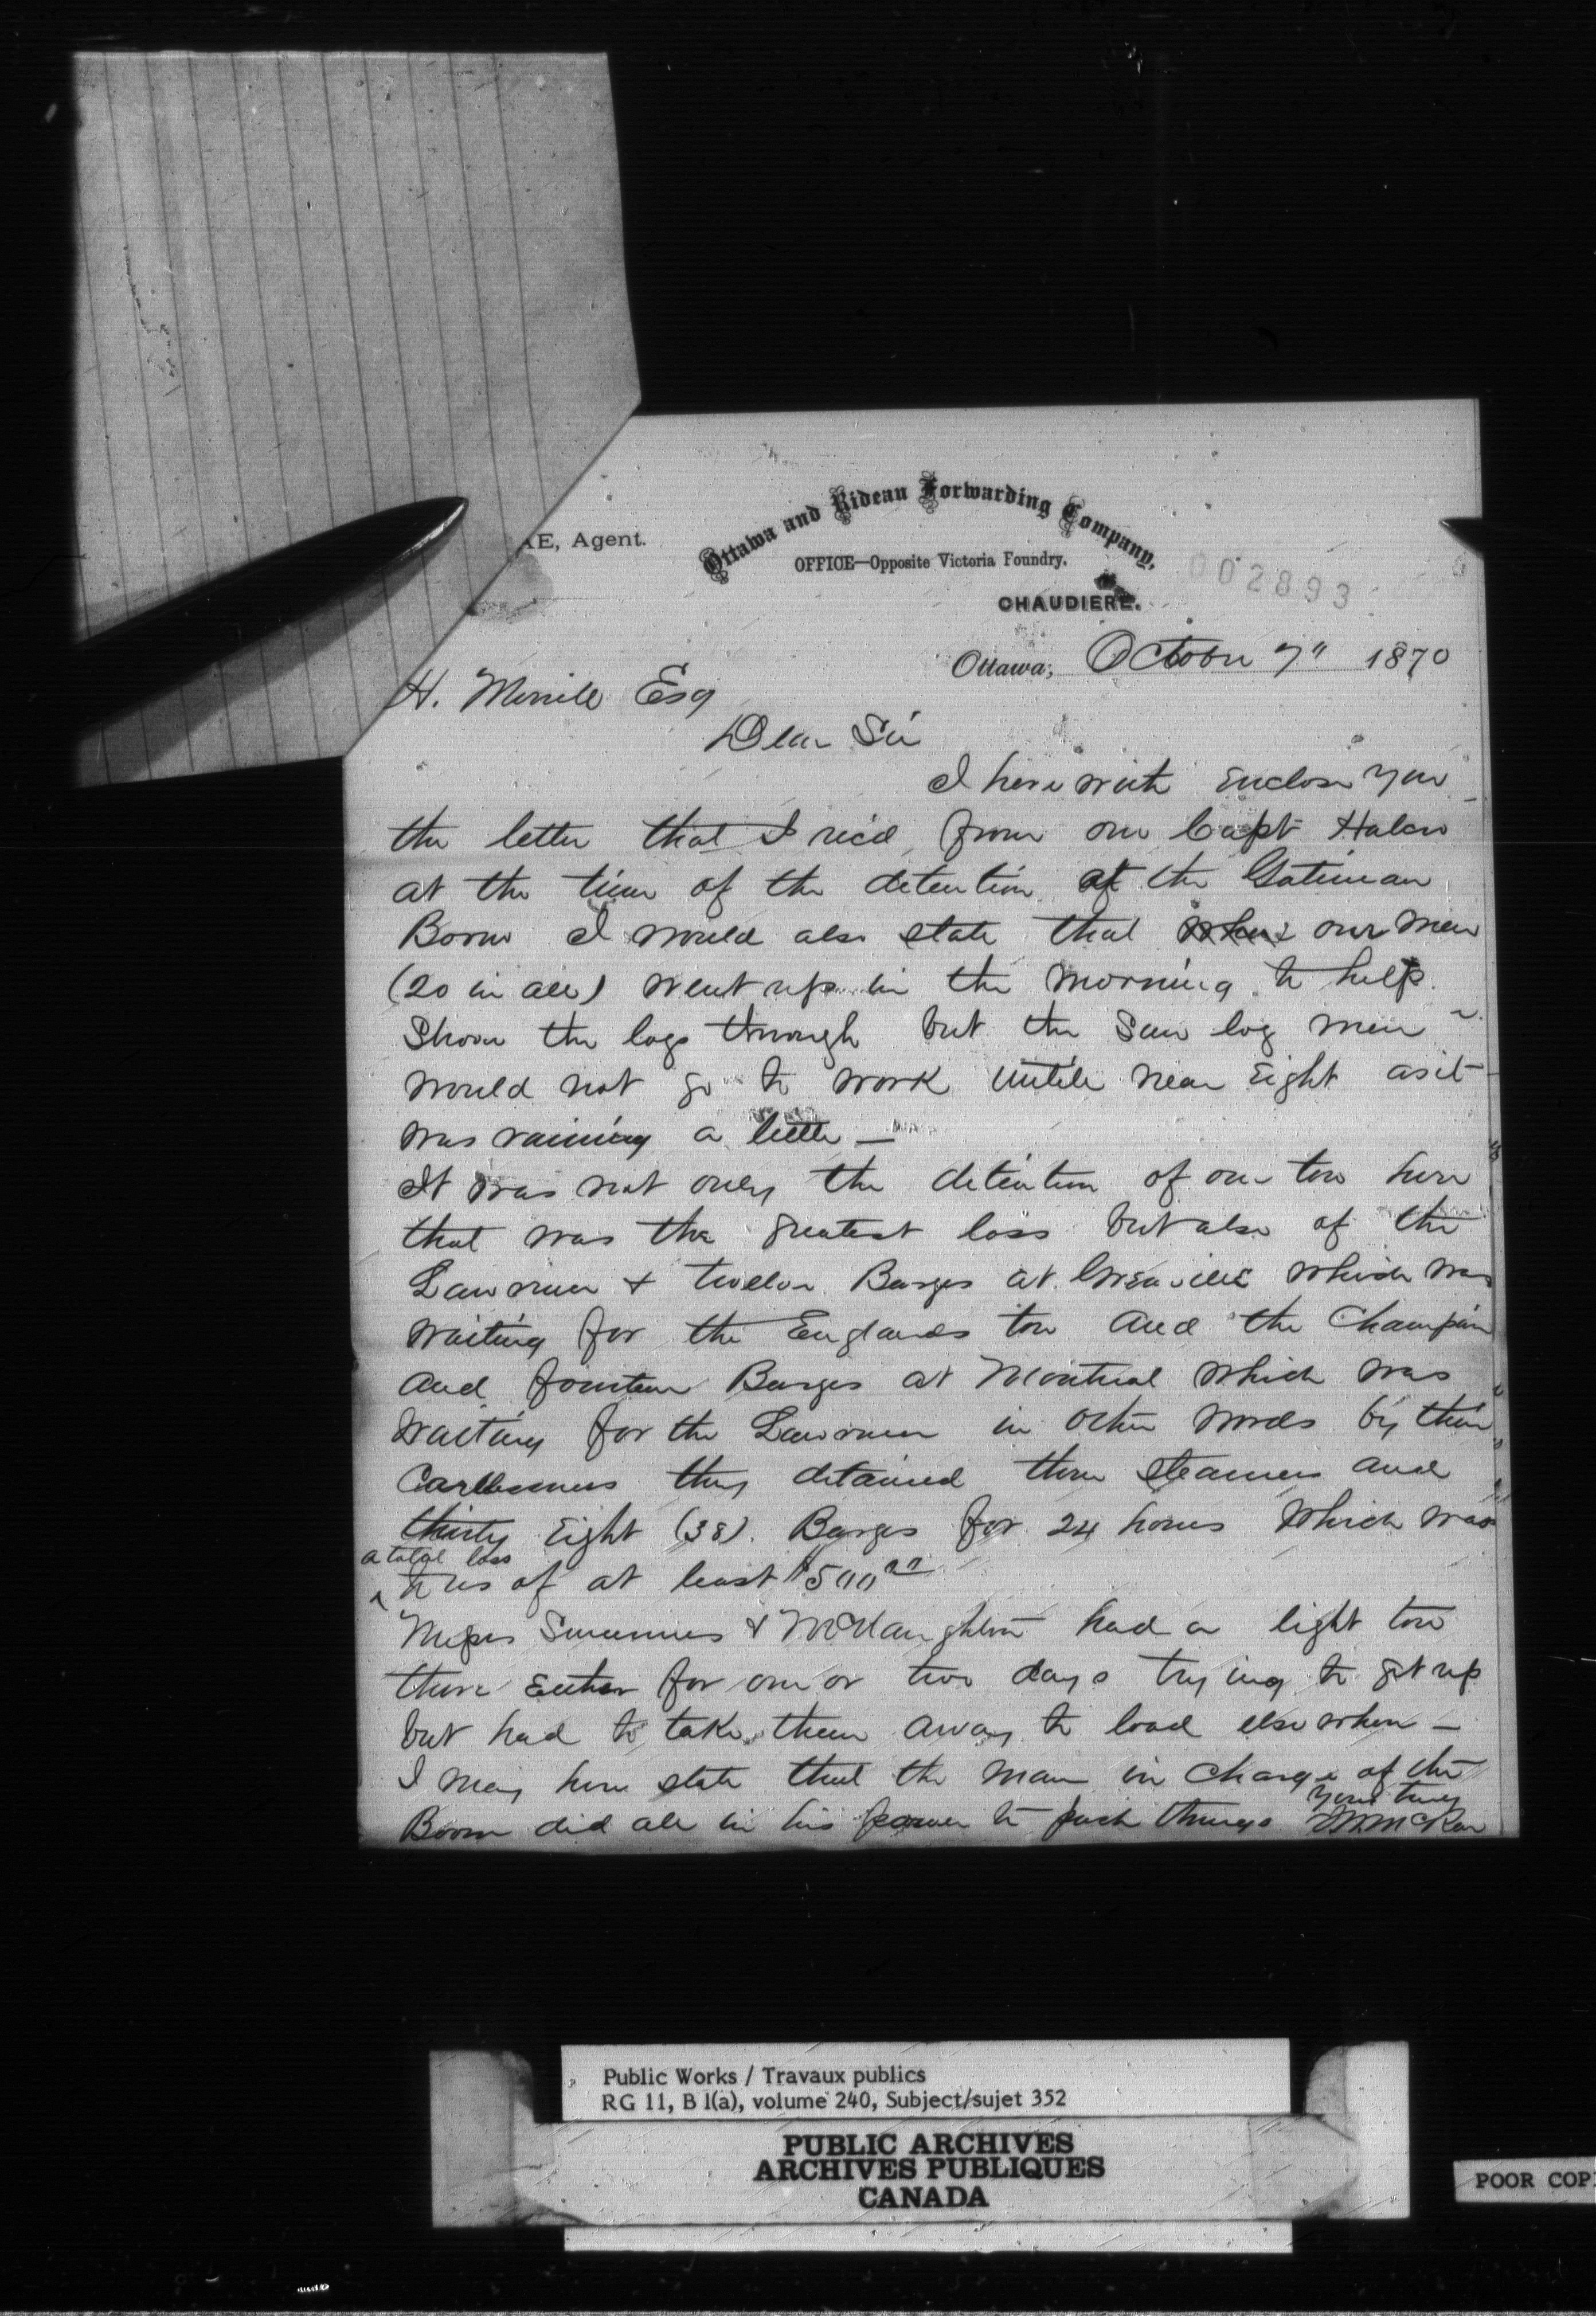 AE, Agent.
Ottawa and Rideau Forwarding Company,
OFFICE—Opposite Victoria Foundry.
CHAUDIERE.
002893
Ottawa, October 7" 1870
H. Merrill Esq
Dear Sir
I herewith Enclose you
the letter that I rec'd from our Capt
at the time of the detention at the Gatineau
Boom I would also state that our men
(20 in all) went up in the morning to help
Shove the logs through but the Saw log men
would not go to work untill near Eight as it
was raining a little —
It was not only the detention of our tow here
that was the greatest loss but also of the
& twelve Barges at Grenville which was
waiting for the Englands tow and the Champion
and fourteen Barges at Montreal which was
waiting for the in other words by their
Carlessness they detained three steamers and
thirty Eight (38) Barges for 24 hours Which was
a total loss
to us of at least $500.00
Messrs & McNaughton had a light tow
there Either for one or two days trying to get up
but had to take them away to load elsewhere —
I may here state that the man in charge of the
Boom did all in his power to push things
Yours truly
McRae
Public Works / Travaux publics
RG 11, B 1(a), volume 240, Subject/sujet 352
PUBLIC ARCHIVES
ARCHIVES PUBLIQUES
CANADA
POOR COP